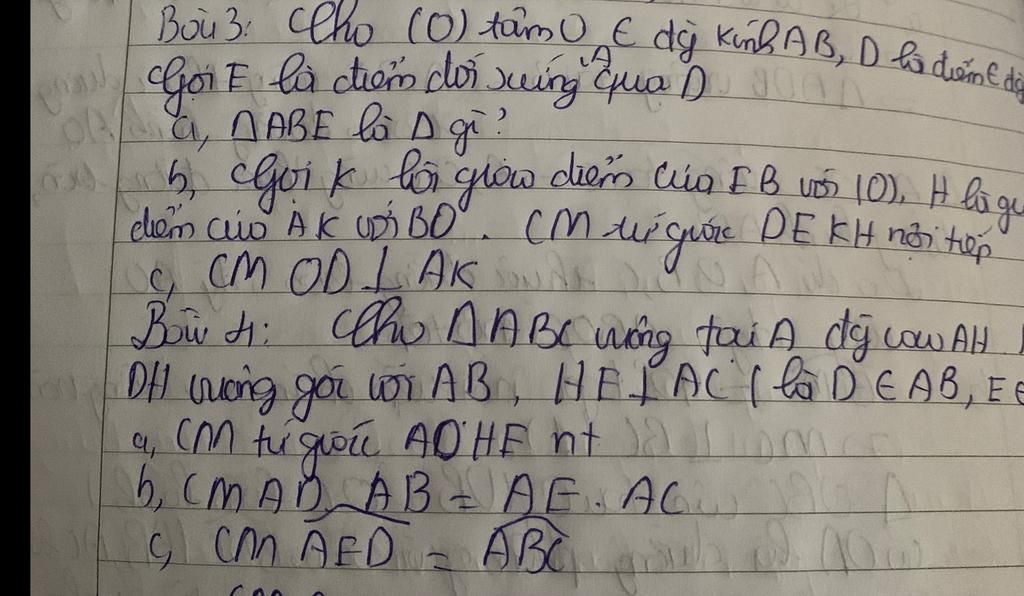 Bài 3: Cho (O) tâm O ∈ đg kính AB, D là điểm ∈ đg
Gọi E là điểm đối xứng A qua D
a, ΔABE là Δ gì?
b, Gọi K là giao điểm của EB với (O), H là
điểm của AK với BD. CM tứ giác DEKH nội tiếp
c, CM OD ⊥ AK
Bài 4: Cho ΔABC vuông tại A đg cao AH
DH vuông góc với AB, HE ⊥ AC ( là D ∈ AB, E ∈
a, CM tứ giác ADHE nt
b, CM AD. AB = AE . AC
c, CM AED = ABC